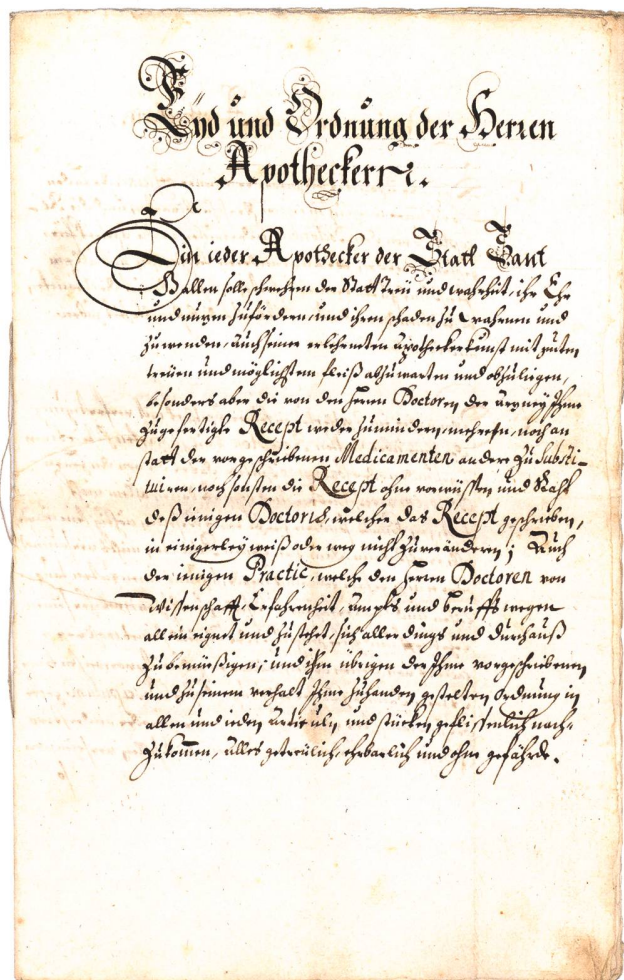 Eyd und Ordnung der Herren
Apotheckern.
Ein ieder Apothecker der Statt Sant
Gallen solle schwehren der Statt Treü und wahrheit, ihr Ehr
und nuzen zufürdern, und ihren schaden zu wahrnen und
zuwenden, auch seiner erlehrneten Apotheckerkunst mit guten
treüen und möglichstem fleiß abzuwarten und obzuligen,
besonders aber die von den Herren Doctoren der Arzney Ihme
zugefertigte Recept weder zumindern, mehren, noch an
statt der vorgeschribenen Medicamenten andere zu Substi-
tuiren, noch sonsten die Recept ohne vorwüssen und Raht
deß ienigen Doctoris, welcher das Recept geschriben,
in einigerley weiß oder weg nicht zuverändern; Auch
der ienigen Practic, welche den Herren Doctoren von
Wissenschafft, Erfahrenheit, Ampts und beruffs wegen
allein eignet und zustehet, sich aller dings und durchauß
zubemüeßigen; und ihm übrigen der Ihme vorgeschriebenen
und zu seinem verhalt Ihme zuhanden gestelten Ordnung in
allen und ieden Articuln, und stucken geflissenlich nach-
zukommen, alles getreülich, ehrbarlich und ohne gefährde.